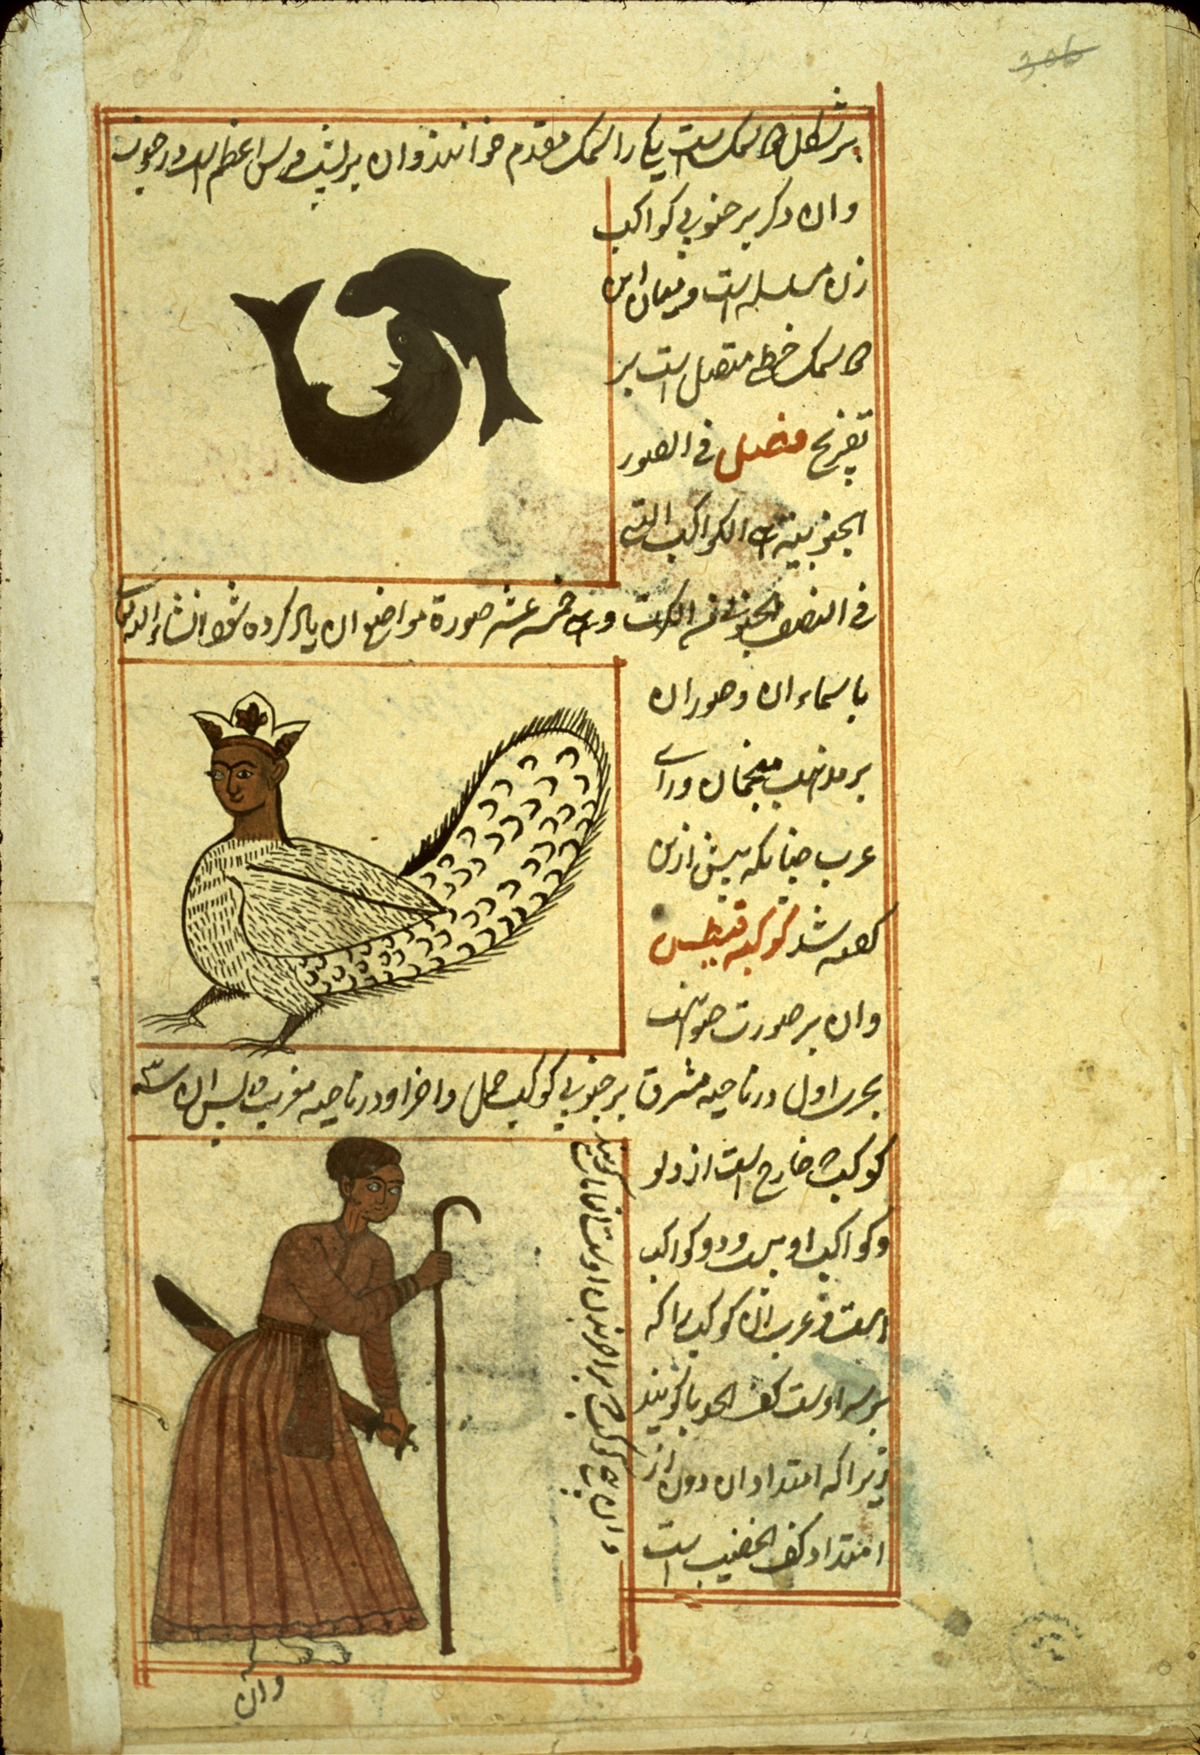 306
بر شکل دو سمک است یکی را سمک مقدم خوانند و ان بر پشت فرس اعظم است در جنوب
و ان دکر بر جنوبی کواکب
زن مسلسله است و میان این
دو سمک خطی متصل است بر
تفریح فصل فی الصور
الجنوبیة وهی الکواکب التی
فی النصف الجنوبی من الکرة وهی خمسة عشر صورة مواضع ان یاد کرده شود انشاء الله
باسماء ان و صور ان
بر مذهب منجمان و رای
عرب چنانکه پیش ازین
کفته شد کوکبه قیطس
و ان بر صورت حیوانیست
بحری اول در ناحیه مشرق بر جنوبی کوکب حمل و اخر او در ناحیه مغرب پس ان سه
کوکب خارج است از دلو
و کواکب او بیست و دو کواکب
است و عرب ان کوکب را که
بر سر اوست کف الجذما کویند
زیرا که امتداد ان دون از
امتداد کف الخضیب است
و ان